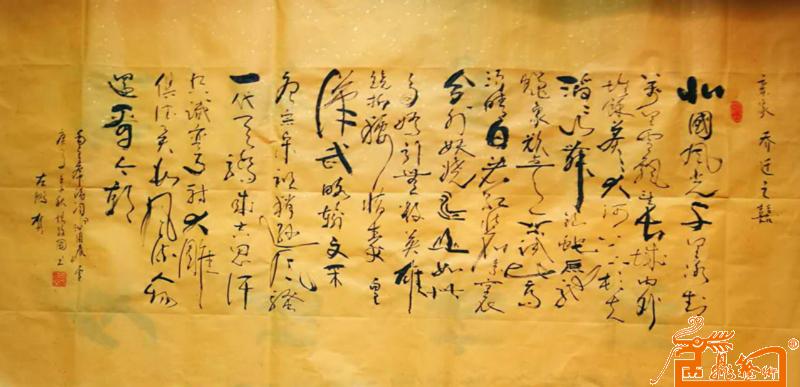 乔迁之囍
北國风光千里冰封
萬里雪飘望长城内外
惟馀莽莽大河上下顿失
滔滔山舞银蛇原驰
蜡象欲与天公试比高
须晴日看红装素裹
分外妖娆江山如此
多娇引無数英雄
竞折腰惜秦皇
漢武略输文采
唐宗宋祖稍逊风骚
一代天骄成吉思汗
只识弯弓射大雕
俱往矣数风流人物
還看今朝